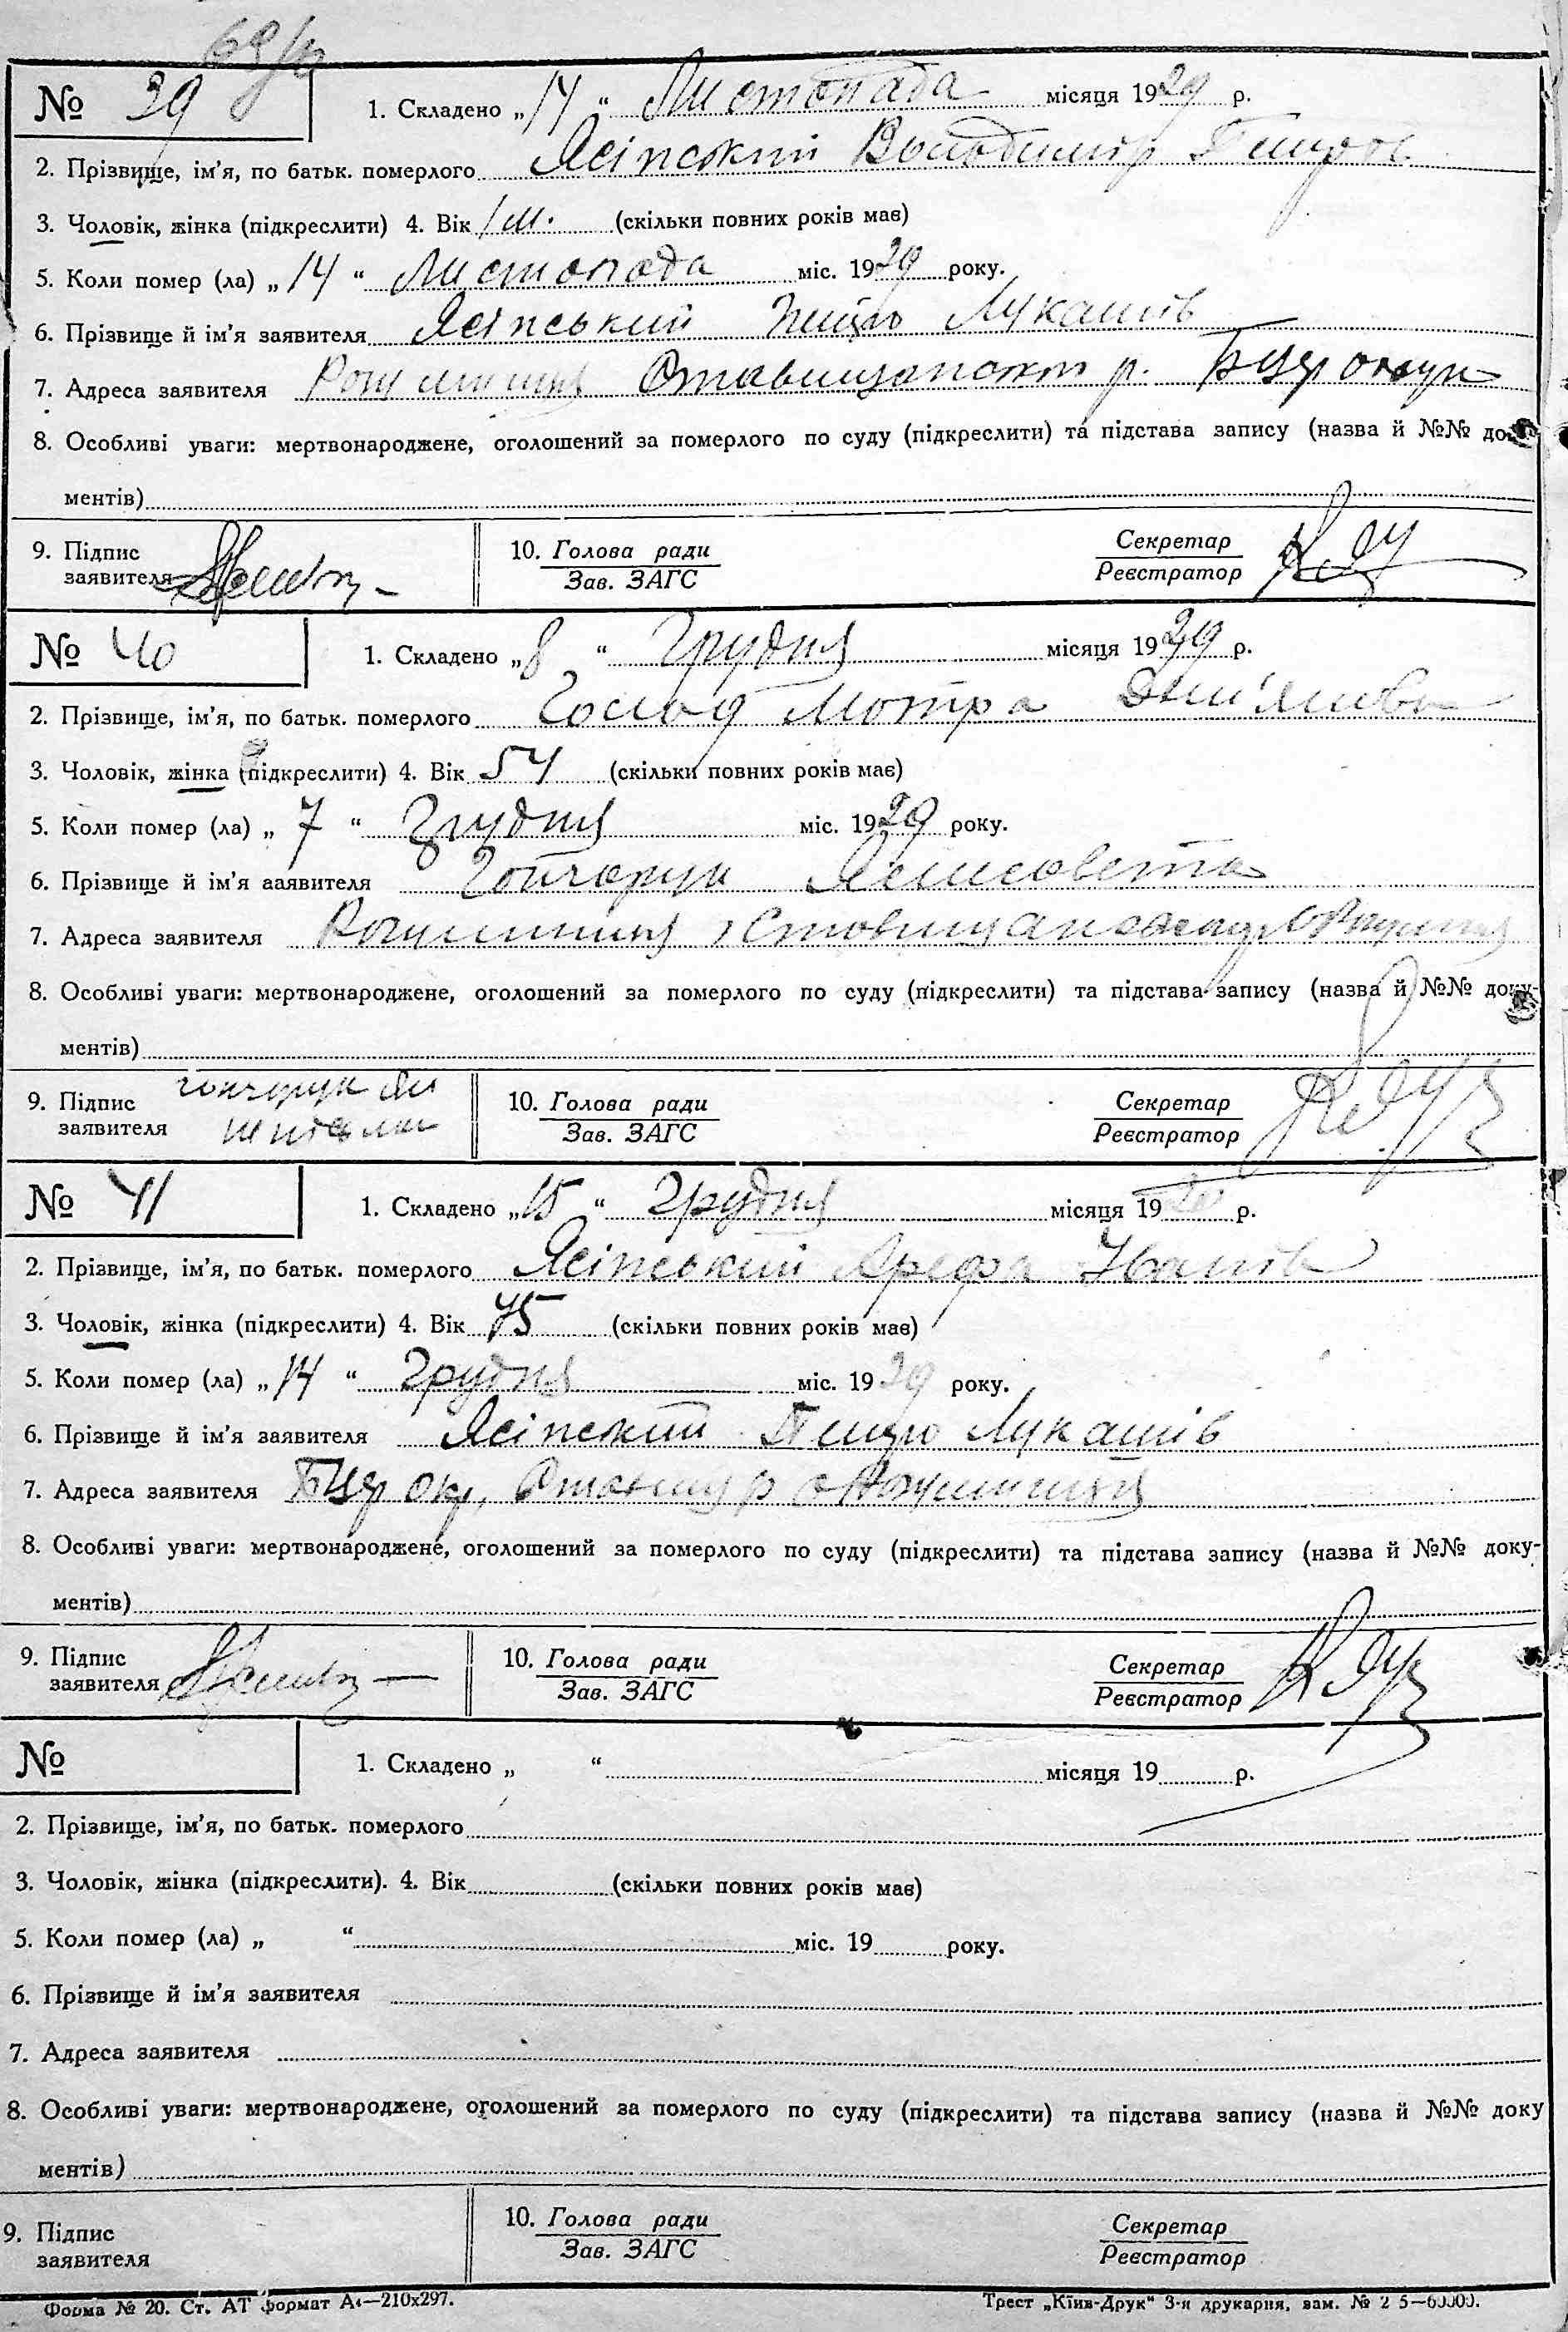 69/
№ 39 1. Складено „14“ Листопада місяця 1929 р.
2. Прізвище, ім'я, по батьк. померлого Ясінский Володимір Петров.
3. Чоловік, жінка (підкреслити) 4. Вік 1 м. (скільки повних років має)
5. Коли помер (ла) „14“ Листопада міс. 1929 року.
6. Прізвище й ім'я заявителя Ясінський Петро Лукашів
7. Адреса заявителя Ставищанском р. БЦер округ
8. Особливі уваги: мертвонароджене, оголошений за померлого по суду (підкреслити) та підстава запису (назва й №№ доку-
ментів)
9. Підпис заявителя 10. Голова ради Секретар
Зав. ЗАГС Реєстратор
№ 40 1. Складено „8“ Грудня місяця 1929 р.
2. Прізвище, ім'я, по батьк. померлого Голод Мотра
3. Чоловік, жінка (підкреслити) 4. Вік 54 (скільки повних років має)
5. Коли помер (ла) „7“ Грудня міс. 1929 року.
6. Прізвище й ім'я ааявителя Гончарук Ялисовета
7. Адреса заявителя
8. Особливі уваги: мертвонароджене, оголошений за померлого по суду (підкреслити) та підстава запису (назва й №№ доку-
ментів)
9. Підпис заявителя гончарук 10. Голова ради Секретар
Зав. ЗАГС Реєстратор
№ 41 1. Складено „15“ Грудня місяця 19 р.
2. Прізвище, ім'я, по батьк. померлого Ясінський Арефа Іванів
3. Чоловік, жінка (підкреслити) 4. Вік 75 (скільки повних років має)
5. Коли помер (ла) „14“ Грудня міс. 1929 року.
6. Прізвище й ім'я заявителя Ясінский Петро Лукашів
7. Адреса заявителя БЦер окр,
8. Особливі уваги: мертвонароджене, оголошений за померлого по суду (підкреслити) та підстава запису (назва й №№ доку-
ментів)
9. Підпис заявителя 10. Голова ради Секретар
Зав. ЗАГС Реєстратор
№ 1. Складено „ “ місяця 19 р.
2. Прізвище, ім'я, по батьк. померлого
3. Чоловік, жінка (підкреслити). 4. Вік (скільки повних років має)
5. Коли помер (ла) „ “ міс. 19 року.
6. Прізвище й ім'я заявителя
7. Адреса заявителя
8. Особливі уваги: мертвонароджене, оголошений за померлого по суду (підкреслити) та підстава запису (назва й №№ доку
ментів)
9. Підпис заявителя 10. Голова ради Секретар
Зав. ЗАГС Реєстратор
Форма № 20. Ст. АТ формат А4—210х297. Трест „Київ-Друк“ 3-я друкарня, зам. №